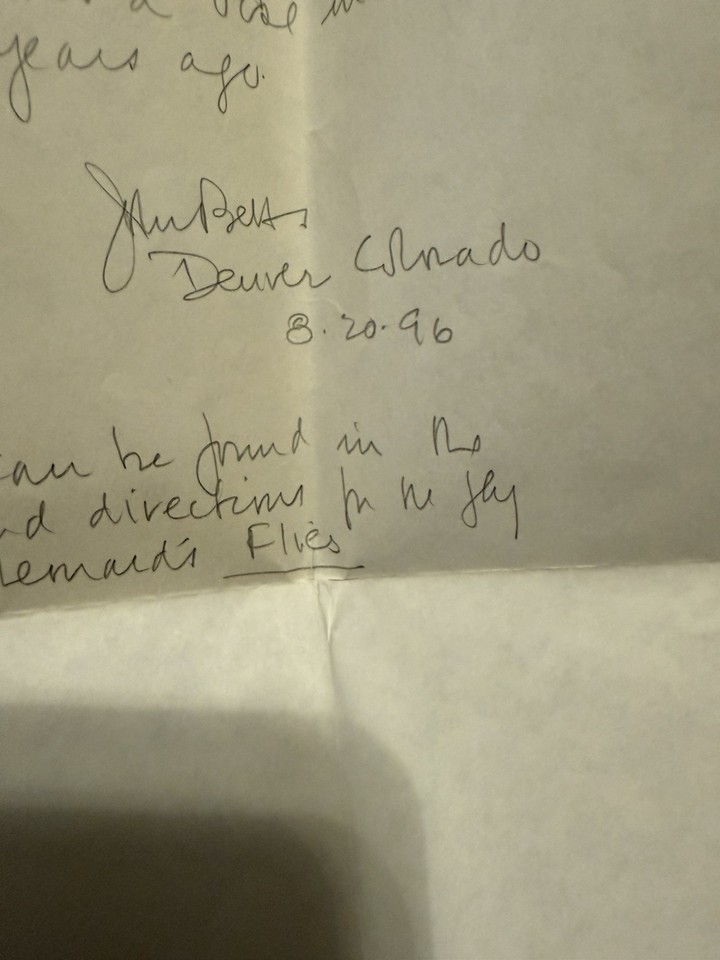 a
years ago.
John Betts
Denver Colorado
8.20.96
can be found in the
nd directions for the fly
Leonard's Flies